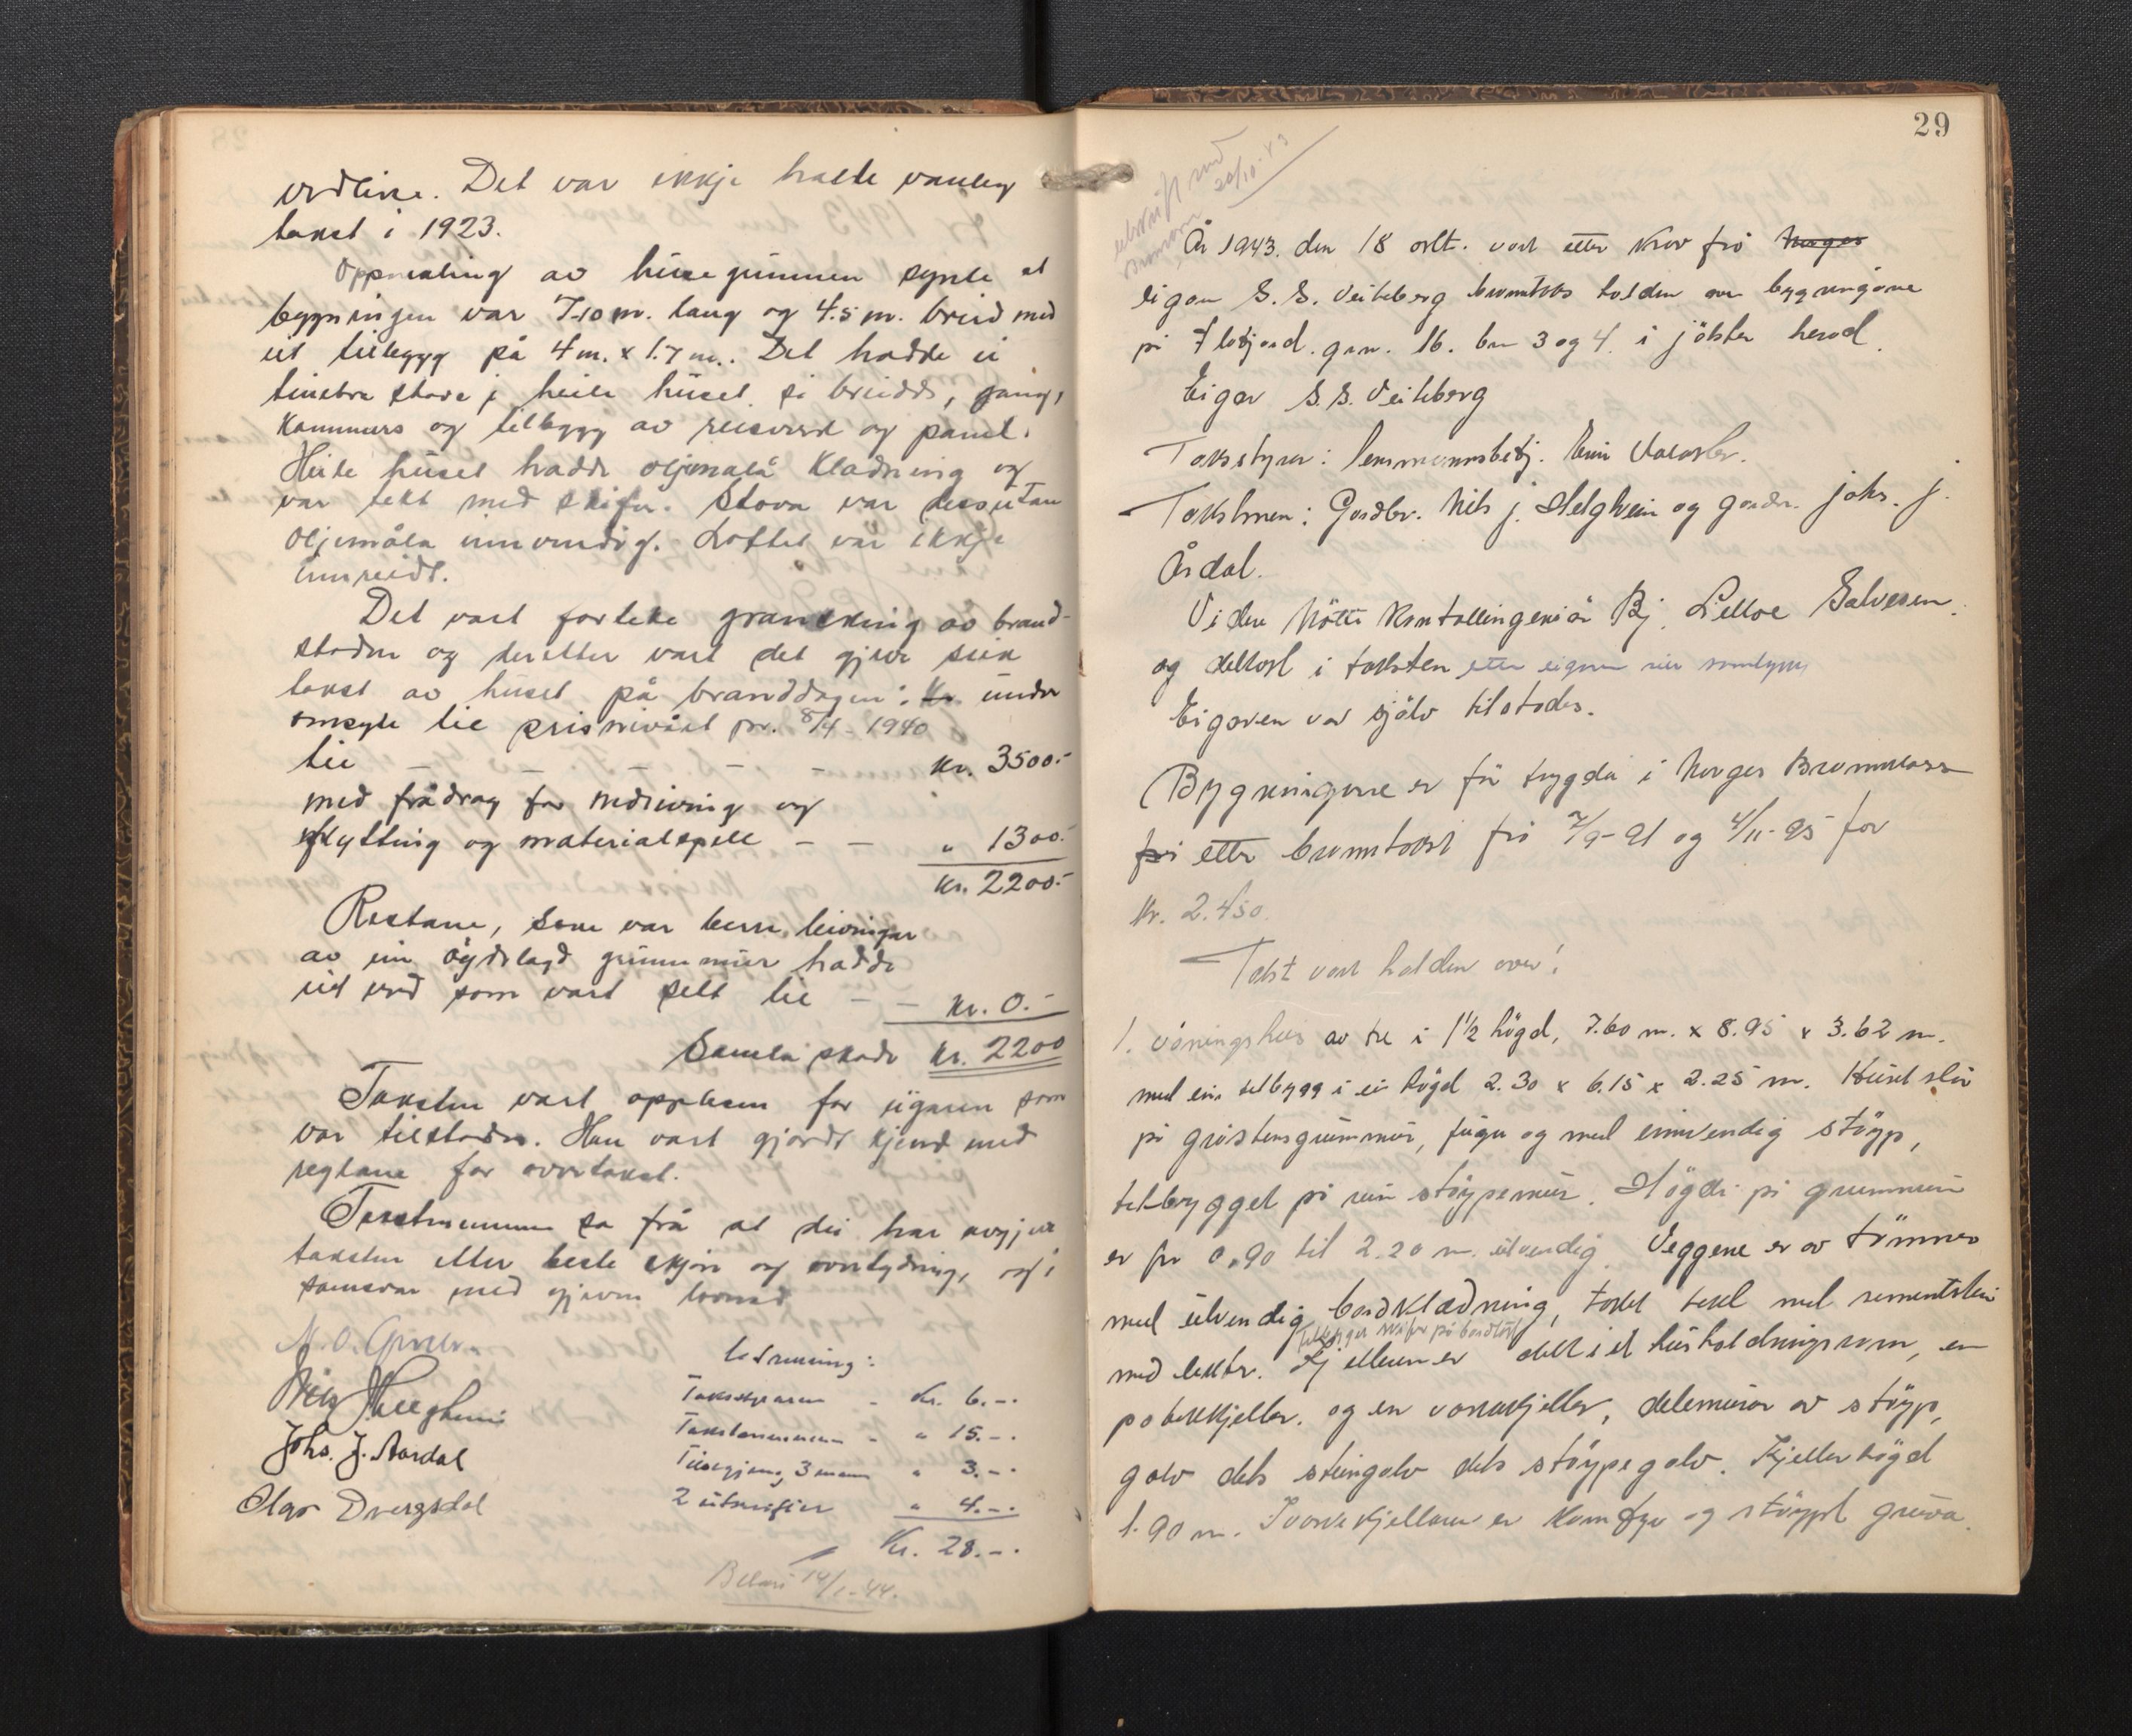 verdlause. Det var ikkje halde vanleg
takst i 1923.
Oppmaling av husegrunnen synte at
bygningen var 7.10 m. lang og 4.5 m. breid med
eit tilbygg på 4 m. x 1.7 m. Det hadde ei
timbra stova i heile huset si breidd, gang,
kammers og tilbygg av reisverd og panel.
Heile huset hadde oljemåla kladning og
var tekt med skifer. Stova var dessutan
oljemåla innvendig. Loftet var ikkje
innreidt.
Det vart forteke gransking av brand-
staden og deretter vart det gjeve slik
takst av huset på branddagen: under
omsyn til prisnivået pr. 8/4-1940
til — — — — — Kr. 3500.-
med frådrag for nedriving og
flytting og materialspell — — " 1300.-
Kr. 2200.-
Restane, som var berre leivningar
av ein øydelagd grunnmur hadde
eit verd som vart sett til — — Kr. 0.-
Samla skade Kr. 2200
Taksten vart opplesen for eigaren som
var tilstades. Han vart gjordt kjend med
reglane for overtakst.
Takstmennene sa frå at dei har avgjeve
taksten etter beste skjøn og overtyding, og i
samsvar med gjeven lovnad
Nils J. Helgheim
Johs. J. Aardal
Olav Dvergsdal
Utrekning:
Takstyraren - Kr. 6.-.
Takstmennene - " 15.-.
Tilsegjing 3 mann " 3.-.
2 utskrifter " 4.-.
Kr. 28.-.
Betalt 14/1-44.
29
utskrift med
20/10-43
År 1943. den 18 okt. vart etter krav frå Norges
eigar S. S. Veiteberg branntakst halden over bygningane
på Flatjord. grn. 16. bn 3 og 4. i Jölster herad.
Eigar S. S. Veiteberg
Takststyrar: lensmannsbetj.
Takstmen: Gardbr. Nils J. Helgheim og gardbr. Johs. J.
Årdal.
Vidare møtte kontrollingeniør Bj. Lilloe Salvesen.
og deltok i taksten etter eigaren sitt samtykke
Eigaren var sjölv tilstades.
Bygningane er før trygda i Norges Brannkasse
frå etter branntakst frå 7/9-21 og 4/11-25 for
kr. 2.450.
Takst vart halden over:
1. våningshus av tre i 1½ högd, 7.60 m. x 8.95 x 3.62 m.
med ein tilbygg i ei högd 2.30 x 6.15 x 2.25 m. Huset står
på gråsteinsgrunnmur, fuga og med innvendig støyp,
tilbygget på rein støypemur. Högdi på grunnmuren
er frå 0,90 til 2.20 m. utvendig. Veggene er av tömmer
med utvendig bordkledning, taket tekt med sementstein
tilbygget skifer på bordtak
med lekter. Kjelleren er delt i et husholdningsrom, en
potetkjeller. og en vaskekjeller, delemurar av støyp,
golv dels steingolv dels støypegolv. Kjellerhögd
1.90 m. I vaskekjelleren er komfyr og støypt gruva.